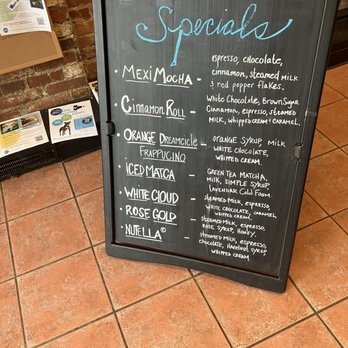 Specials
MEXI MOCHA - espresso, chocolate,
cinnamon, steamed milk
& red pepper flakes.
CINNAMON ROLL - White Chocolate, Brown Sugar
Cinnamon, espresso, steamed
milk, whipped cream & caramel.
ORANGE DREAMCICLE FRAPPUCINO - ORANGE SYRUP, MILK
WHITE CHOCOLATE,
WHIPPED CREAM.
ICED MATCA - GREEN TEA MATCHA,
Milk, SIMPLE SYRUP,
LAVENDAR Cold FOAM.
WHITE CLOUD - STEAMED MILK, ESPRESSO,
WHITE CHOCOLATE, CARAMEL,
WHIPPED CREAM.
ROSE GOLD - STEAMED MILK, ESPRESSO,
ROSE SYRUP, HONEY.
NUTELLA® - STEAMED MILK, ESPRESSO,
chocolate, HAZELNUT SYRUP,
WHIPPED CREAM